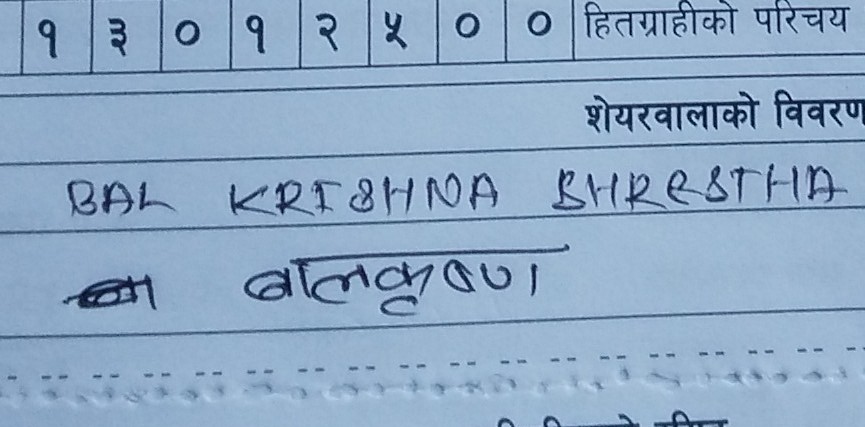 १ ३ ० १ २ ५ ० ० हितग्राहीको परिचय
शेयरवालाको विवरण
BAL KRISHNA SHRESTHA
बालकृष्ण